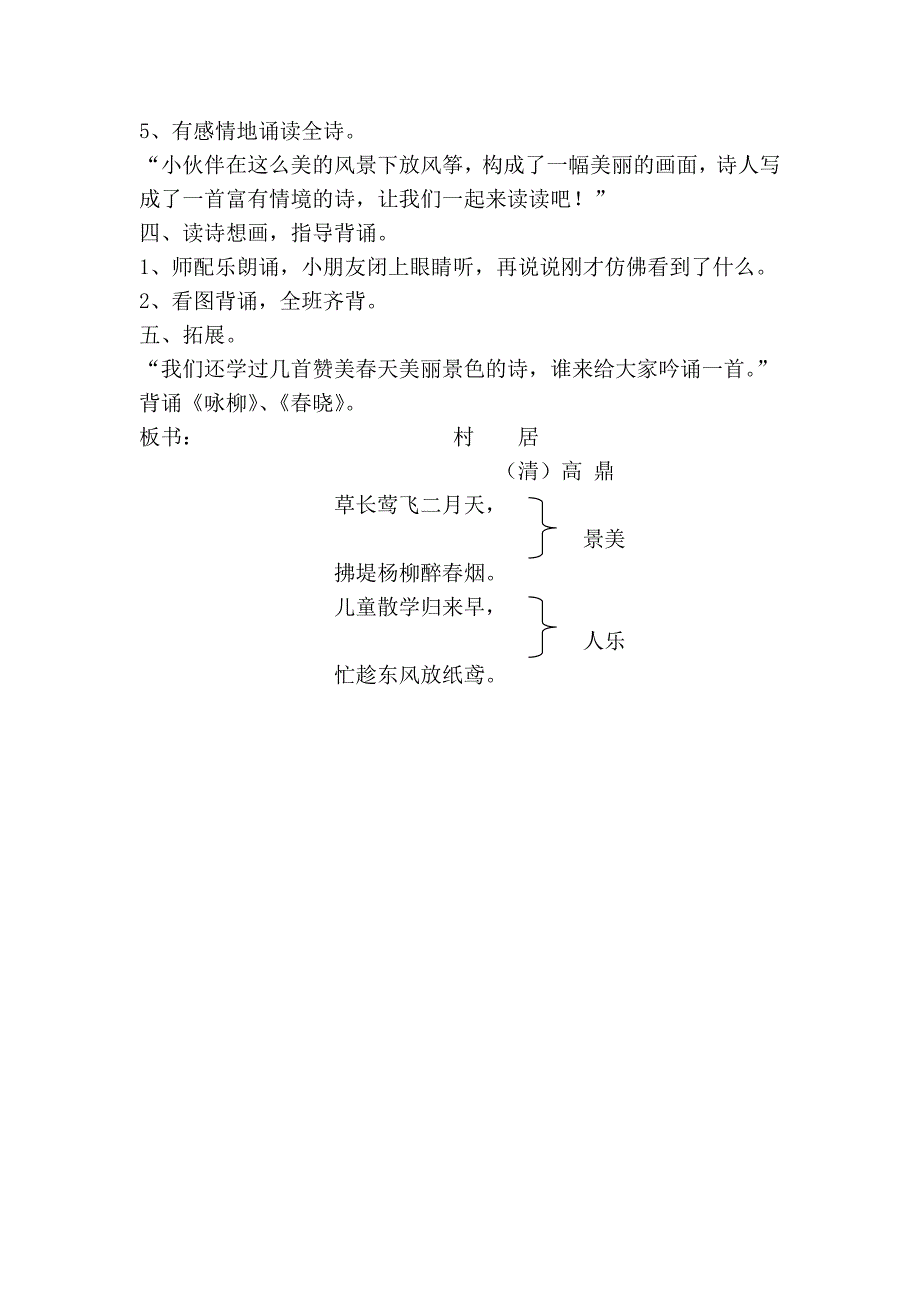 5、有感情地诵读全诗。
“小伙伴在这么美的风景下放风筝，构成了一幅美丽的画面，诗人写
成了一首富有情境的诗，让我们一起来读读吧！”
四、读诗想画，指导背诵。
1、师配乐朗诵，小朋友闭上眼睛听，再说说刚才仿佛看到了什么。
2、看图背诵，全班齐背。
五、拓展。
“我们还学过几首赞美春天美丽景色的诗，谁来给大家吟诵一首。”
背诵《咏柳》、《春晓》。
板书： 村 居
（清）高 鼎
草长莺飞二月天，
景美
拂堤杨柳醉春烟。
儿童散学归来早，
人乐
忙趁东风放纸鸢。